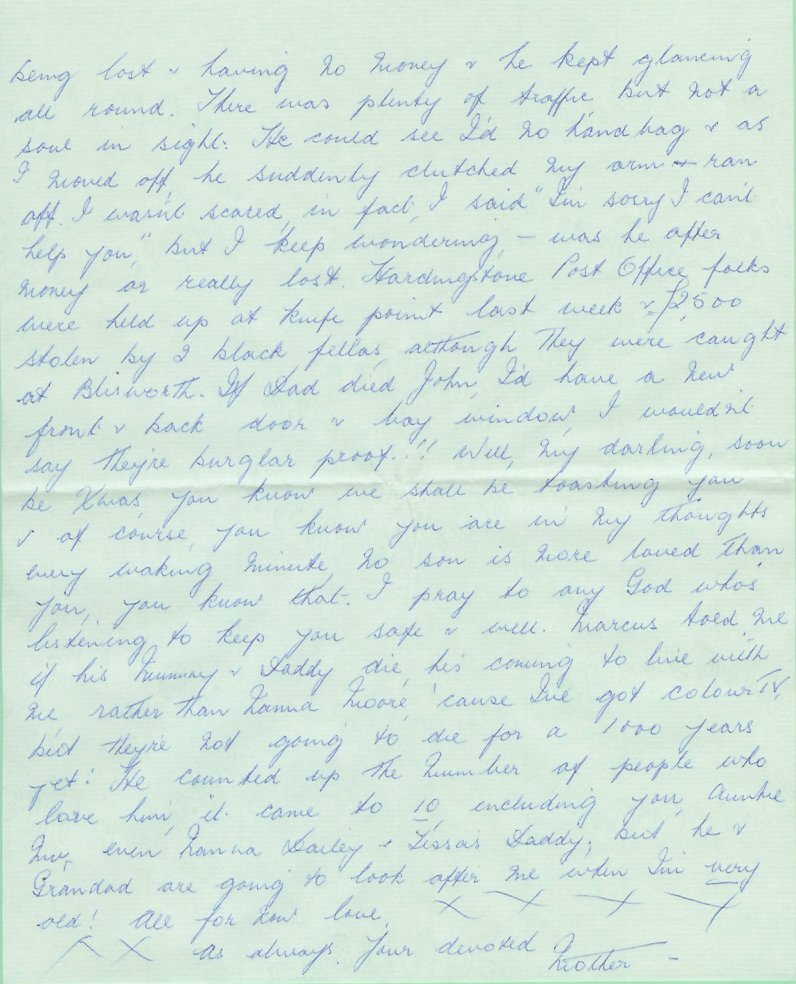 being lost & having no money & he kept glancing
all round. There was plenty of traffic but not a
soul in sight. He could see I'd no handbag & as
I moved off, he suddenly clutched my arm & ran
off. I wasn't scared, in fact, I said "I'm sorry I can't
help you," but I keep wondering, – was he after
money or really lost. Hardingstone Post Office folks
were held up at knife point last week & £2,800
stolen by 2 black fellas, although they were caught
at Blisworth. If Dad died John, I'd have a new
front & back door & bay window, I wouldn't
say they're burglar proof.!! Well, my darling, soon
be Xmas, you know we shall be toasting you
& of course, you know you are in my thoughts
every waking minute, no son is more loved than
you, you know that. I pray to any God who's
listening to keep you safe & well. Marcus told me
if his Mummy & Daddy die, he's coming to live with
me rather than Nanna Moore 'cause I've got colour TV,
but they're not going to die for a 1000 years
yet! He counted up the number of people who
love him, it came to 10, including you, Auntie
even Nanna Dailey & Lissa's Daddy, but he &
Grandad are going to look after me when I'm very
old! All for now love, X X X X
X X as always, Your devoted Mother –